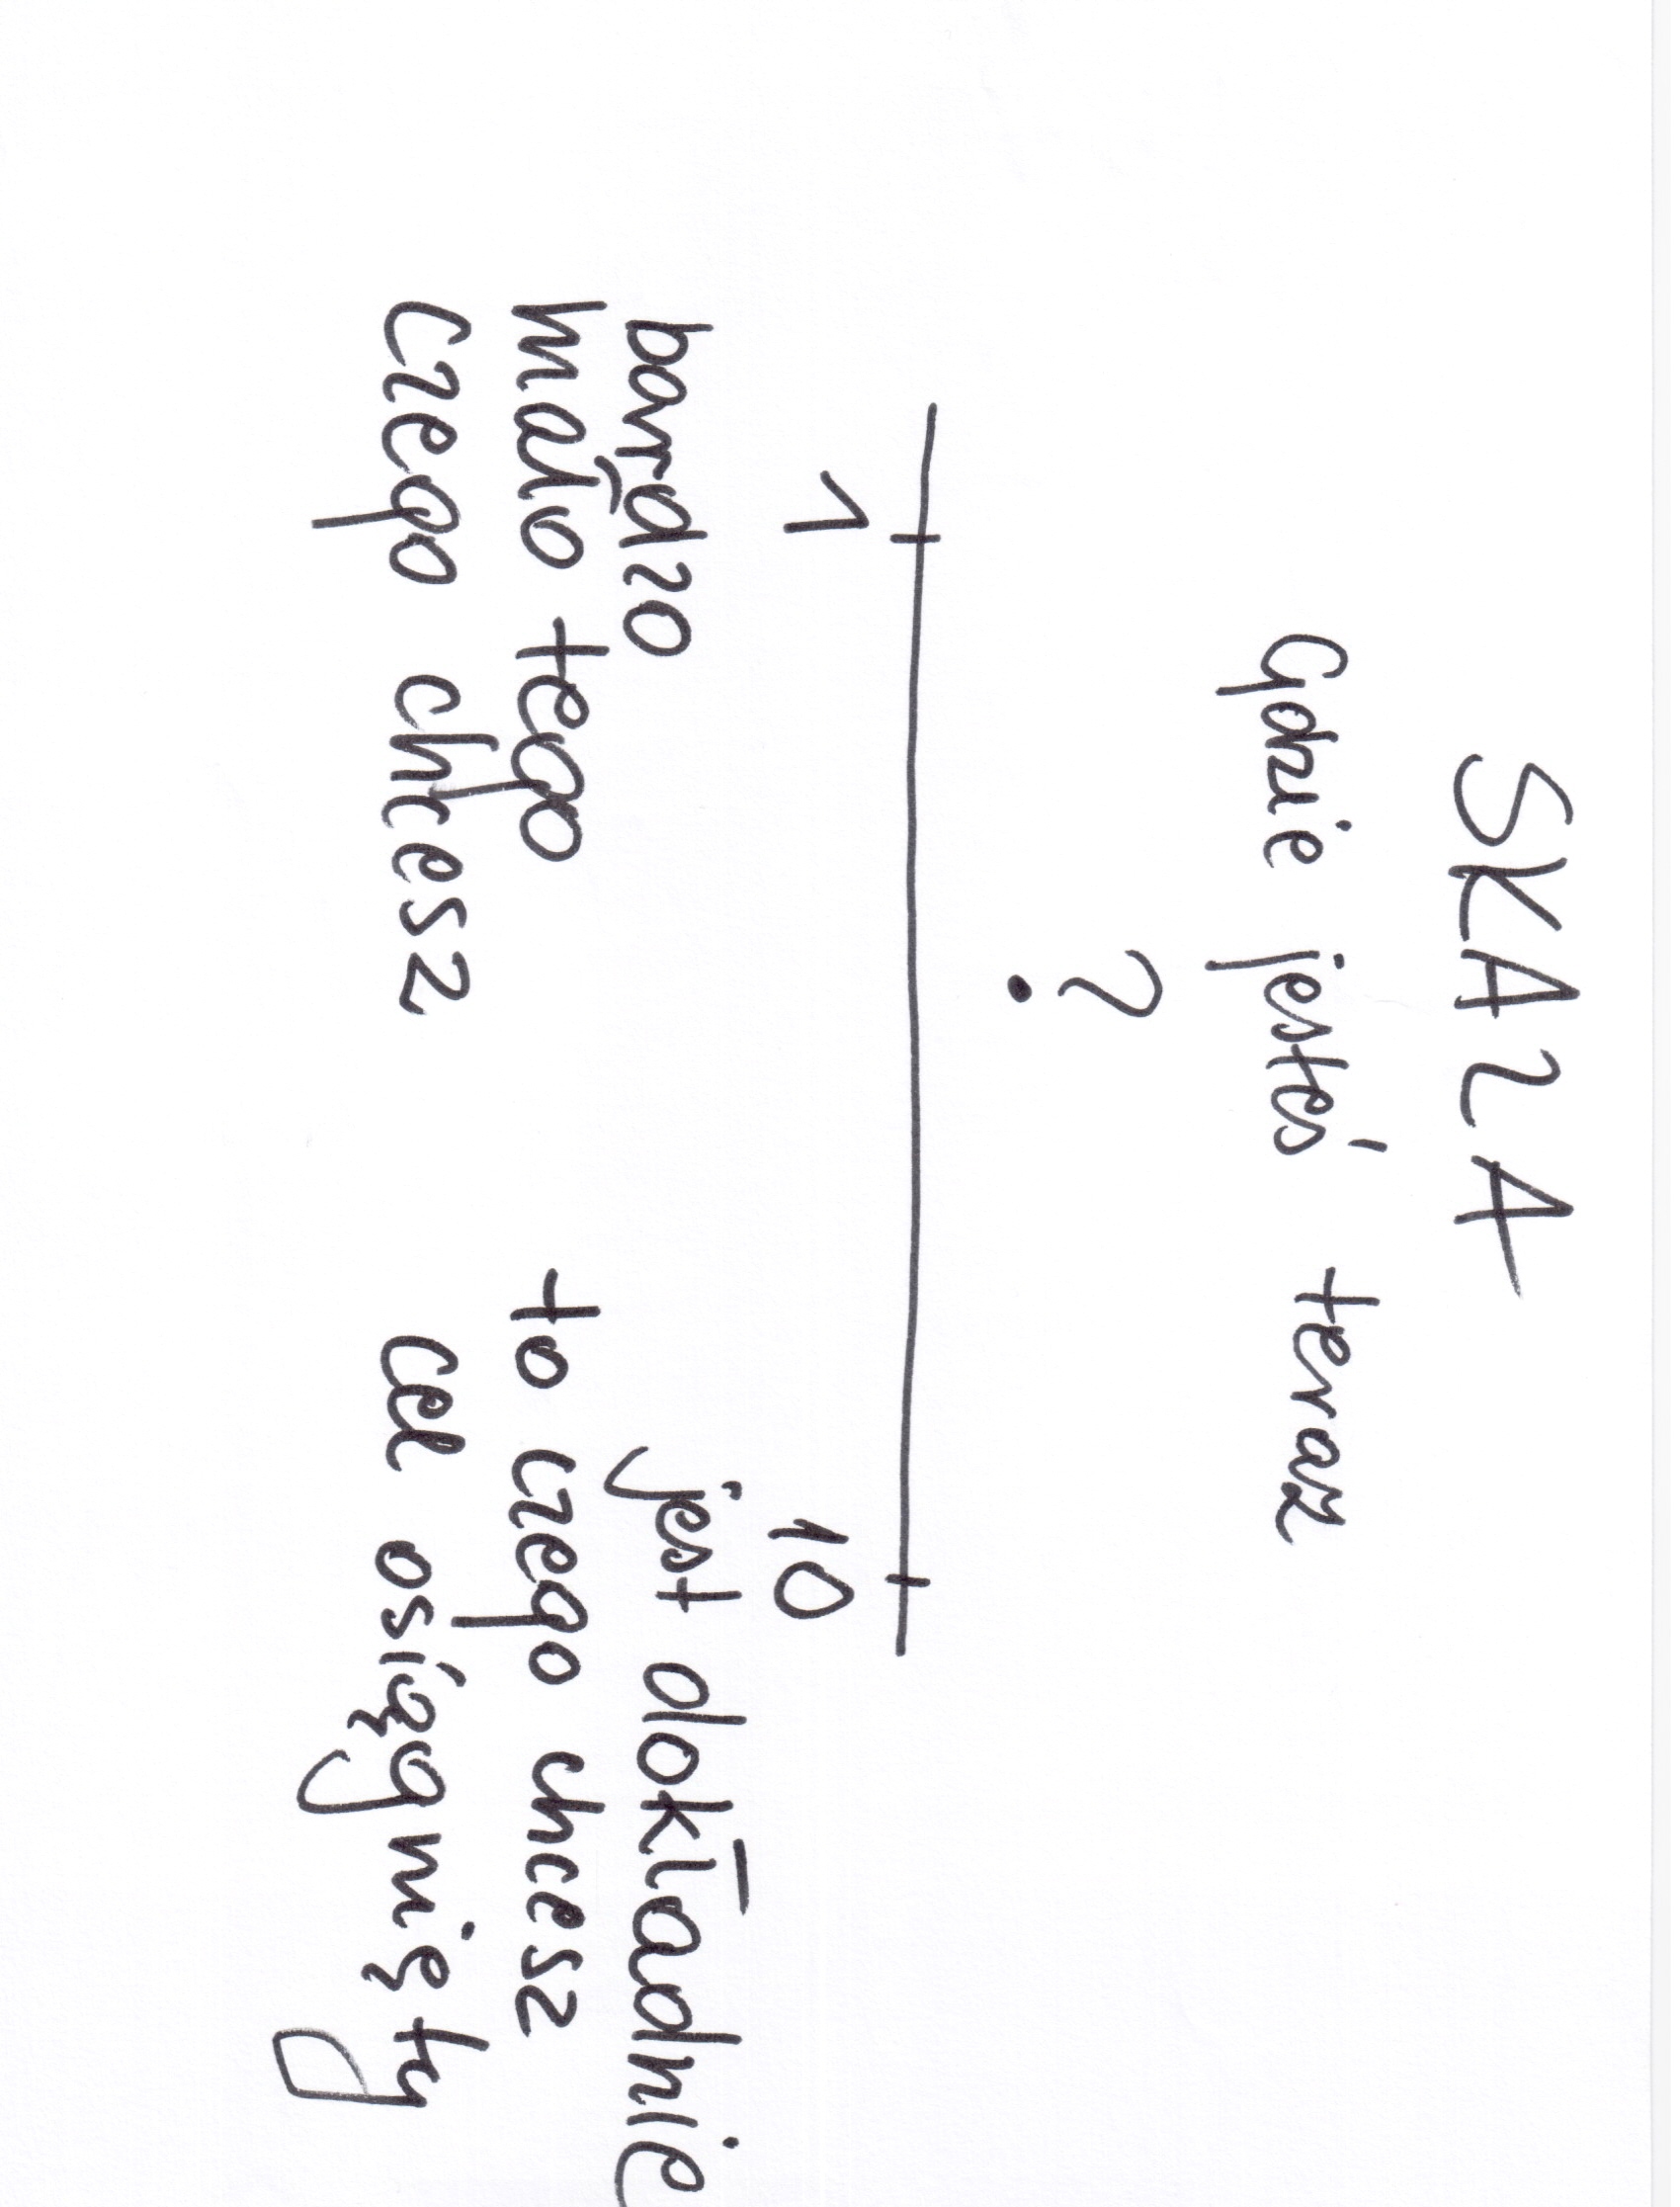 SKALA
Gdzie jesteś teraz
?
1
10
bardzo
mało tego
czego chcesz
jest dokładnie
to czego chcesz
cel osiągnięty